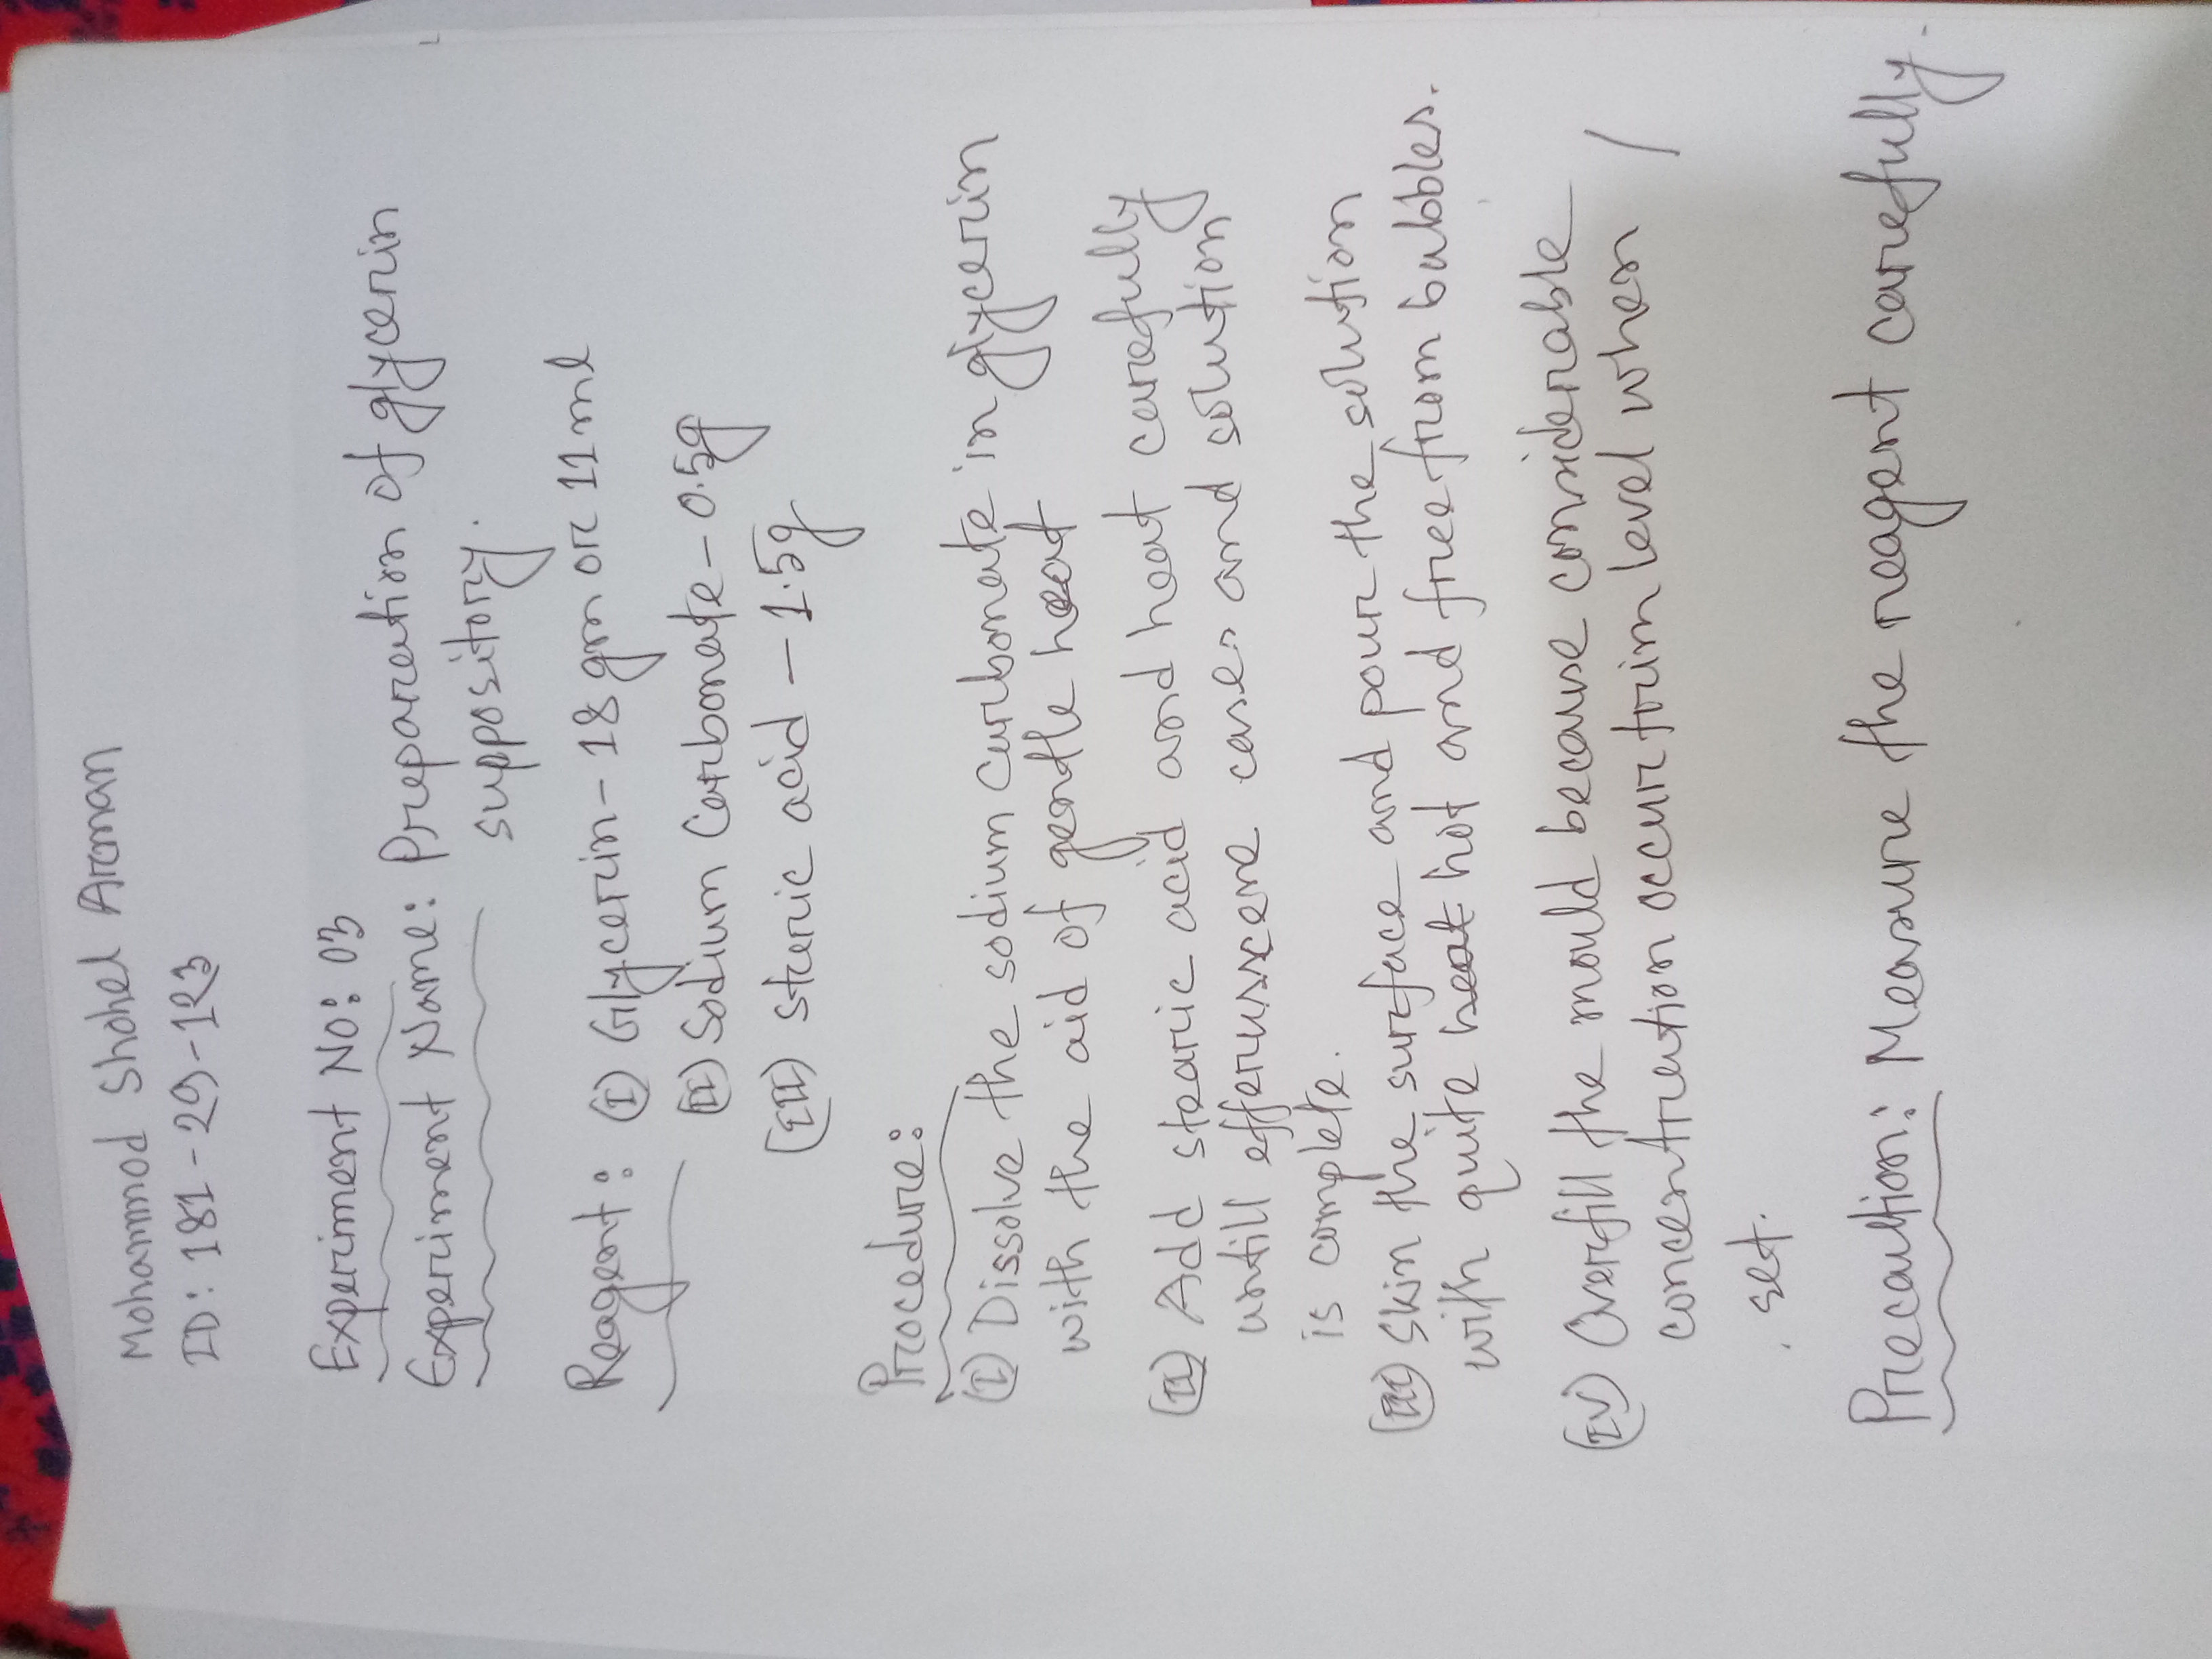 Mohammod Shohel Arman
ID: 181-29-123
Experiment No: 03
Experiment Name: Preparation of glycerin
suppository.
Reagent: (I) Glycerin - 18 gm or 11 ml
(II) Sodium Carbonate - 0.5g
(III) steric acid - 1.5g
Procedure:
(I) Dissolve the sodium Carbonate in glycerin
with the aid of gentle heat
(II) Add stearic acid and heat carefully
untill effervscene cases and solution
is complete.
(III) Skin the surface and pour the solution
with quite hot and free from bubbles.
(IV) Overfill the mould because considerable
concentration occur trim level when
set.
Precaultion: Measure the reagent carefully.